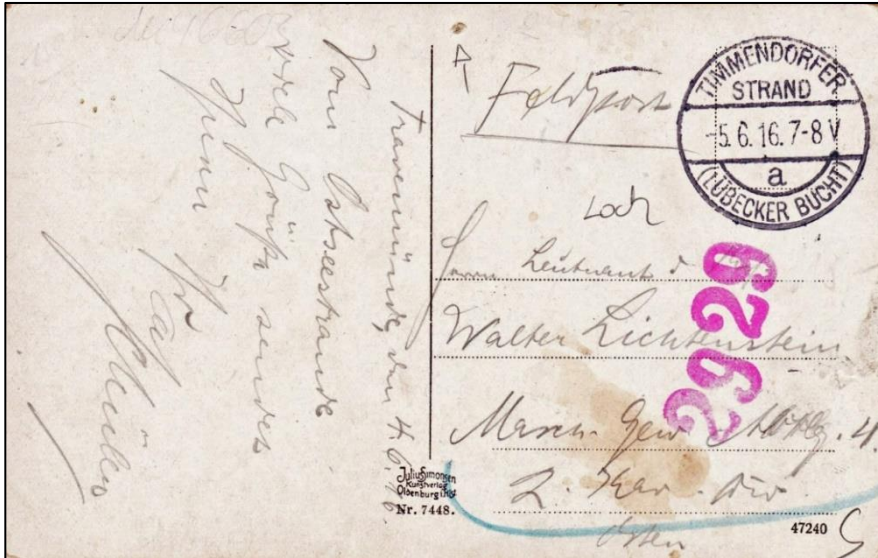 Travemünde, den 4.6.16
Vom Ostseestrande
viele Grüße sendet
Ihnen Ihr
Feldpost
TIMMENDORFER
STRAND
-5.6.16.7-8 V
a
(LÜBECKER BUCHT)
Loch
Herrn Leutnant d
Walter Lichtenstein
2929
Masch. Gew. Abtlg. 4.
2. Kav. Div.
Osten
Julius Simonsen
Kunstverlag
Oldenburg i. Hol
Nr. 7448.
47240